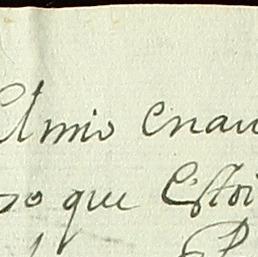 Amio enau
so que Estoi